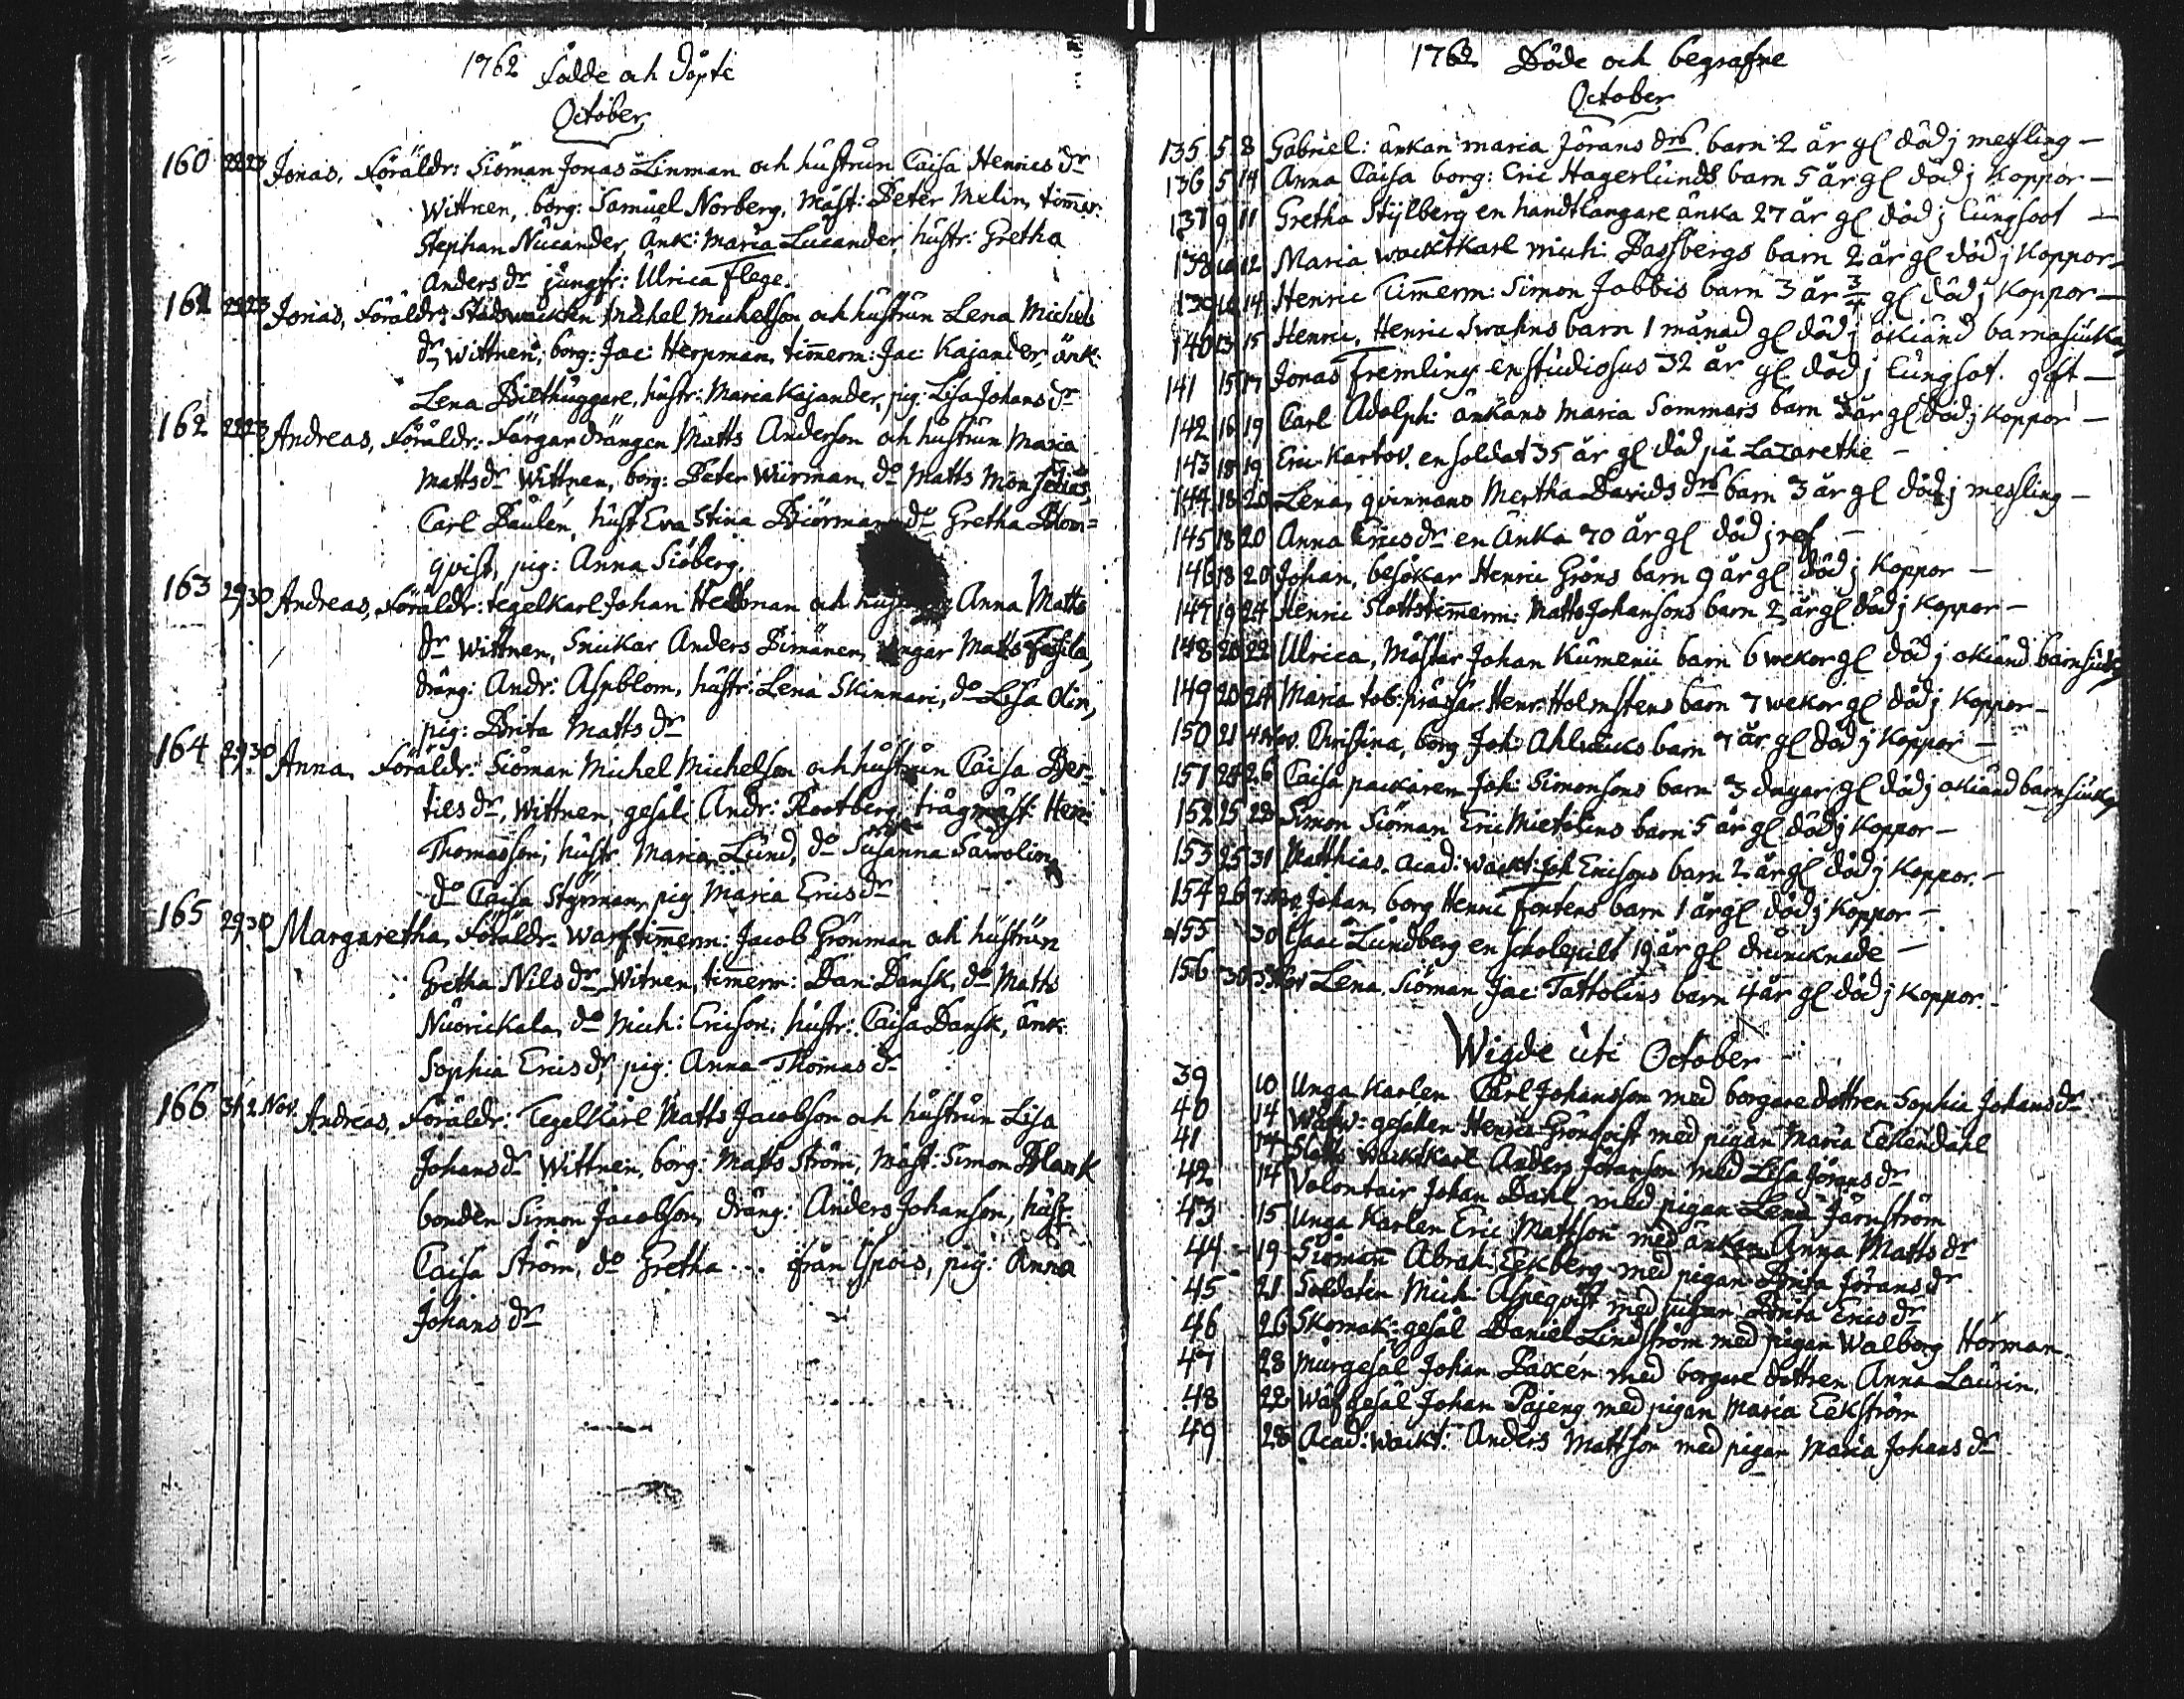 1762 Födde och döpte
October
160 22 23 Jonas, Föräldr: Siöman Jonas Linman och hustrun Caisa Henrics dr
Wittnen, borg: Samuel Norberg, Mäst: Peter Melin, timmer:
Stephan Nucander, Ank: Maria Lucander, hustr: Gretha
Anders dr jungfr: Ulrica Flege.
161 22 23 Jonas, Föräldr: Stadswacktkn Michel Michelson och hustrun Lena Michels
dr, Wittnen, borg: Jac: Herpman, timmerm: Jac: Kajander, änk:
Lena Bilthuggare, hustr: Maria Kajander, pig: Lisa Johans dr
162 22 23 Andreas, Föräldr: Färgar drängen Matts Anderson och hustrun Maria
Matts dr Wittnen, borg: Peter Wiirman, do Matts Monselius,
Carl Paulen, hust Eva Stina Biörman do Gretha Blom=
qvist, pig: Anna Siöberg.
163 29 30 Andreas, Föräldr: tegelkarl Johan Hedman och Anna Matts
dr Wittnen, Snickar Anders Bimänen, Matts Fasila,
dräng: Andr: Aspblom, hustr: Lena Skinnari, do Lisa Olin,
pig: Brita Matts dr
164 29 30 Anna, Föräldr: Siöman Michel Michelson och hustrun Caisa Ber=
tils dr, Wittnen, gesäll: Andr: Rootberg, trägmäst: Henr:
Thomasson, hustr: Maria Lund, do Susanna Sawolin,
do Caisa Styrman, pig Maria Erics dr
165 29 30 Margaretha, Föräldr: Warfstimmerm: Jacob Grönman och hustrun
Gretha Nils dr, Witnen, timmerm: Dan: Dansk, do Matts
Nuorickala, do Mich: Ericson, hustr: Caisa Dansk, änk:
Sophia Erics dr, pig: Anna Thomas dr
166 31 2 Nov. Andreas, Föräldr: Tegelkarl Matts Jacobson och hustrun Lisa
Johans dr Wittnen, borg: Matts Ström, Mäst: Simon Blank
bonden Simon Jacobson, dräng: Anders Johanson, hustr:
Caisa Ström, do Gretha ... ifrån Ispois, pig: Anna
Johans dr
1762. Döde och begrafne
October
135 5 8 Gabriel: änkan Maria Jörans drs barn 2 år gl död j messling –
136 5 14 Anna Caisa borg: Eric Hagerlunds barn 5 år gl död j Koppor –
137 9 11 Gretha Stijlberg en handtlangare änka 27 år gl död j lungsoot –
138 10 12 Maria wacktkarl Mich: Bassbergs barn 2 år gl död j Koppor –
139 10 14 Henric Timmerm: Simon Jobbis barn 3 år 3/4 gl död j Koppor –
140 13 15 Henric, Henric Swahns barn 1 månad gl död j okiänd barnasiuka
141 15 17 Jonas Fremling en studiosus 32 år gl död j lungsot. gift –
142 16 19 Carl Adolph: änkans Maria Sommars barn 3 år gl död j Koppor –
143 18 19 Eric Kartov. en soldat 35 år gl död på Lazarethe –
144 18 20 Lena, qvinnans Mertha Davids drs barn 3 år gl död j messling –
145 18 20 Anna Erics dr en änka 70 år gl död j –
146 18 20 Johan, besökar Henric Gröns barn 9 år gl död j Koppor –
147 19 24 Henric Slottstimmerm: Matts Johansons barn 2 år gl död j Koppor –
148 20 22 Ulrica, Mästar Johan Kumenii barn 6 wekor gl död j okiänd barnsiuka
149 20 24 Maria tob: prässar. Henr: Holmstens barn 7 wekor gl död j Koppor –
150 21 4 Nov. Christina, borg Joh: Ahlwiks barn 7 år gl död j Koppor –
151 24 26 Caisa packaren Joh: Simonsons barn 3 dagar gl död j okiänd barnsiuka
152 25 28 Simon Siöman Eric Mietolins barn 5 år gl död j Koppor –
153 25 31 Matthias. Acad: wackt: Joh Ericsons barn 2 år gl död j Koppor. –
154 26 7 Nov. Johan, borg Henric Fontens barn 1 år gl död j Koppor –
155 30 Isaac Lundberg en scholepilt 19 år gl druncknade –
156 30 3 Nov Lena, Siöman Jac: Tattolins barn 4 år gl död j Koppor. –
Wigde uti October
39 10 Unga Karlen Carl Johansson med borgare dottren Sophia Johans dr
40 14 Wäfw: gesällen Henric Grönqvist med pigan Maria Eekendahl
41 14 Slotts wacktkarl Anders Jöranson med Lisa Jörans dr
42 14 Volontair Johan Dahl med pigan Lena Järnström
43 15 Unga Karlen Eric Mattson med änkan Anna Matts dr
44 19 Siöman Abrah: Eekberg med pigan Brita Jörans dr
45 21 Soldaten Mich: Aspeqvist med pigan Brita Erics dr
46 26 Skomak: gesäl Daniel Lindström med pigan Walborg Hörman.
47 28 Murgesäl Johan Paxen med borgare dottren Anna Laurin.
48 22 Wäfgesäl Johan Pajeng med pigan Maria Eekström
49 28 Acad: wackt: Anders Mattson med pigan Maria Johans dr